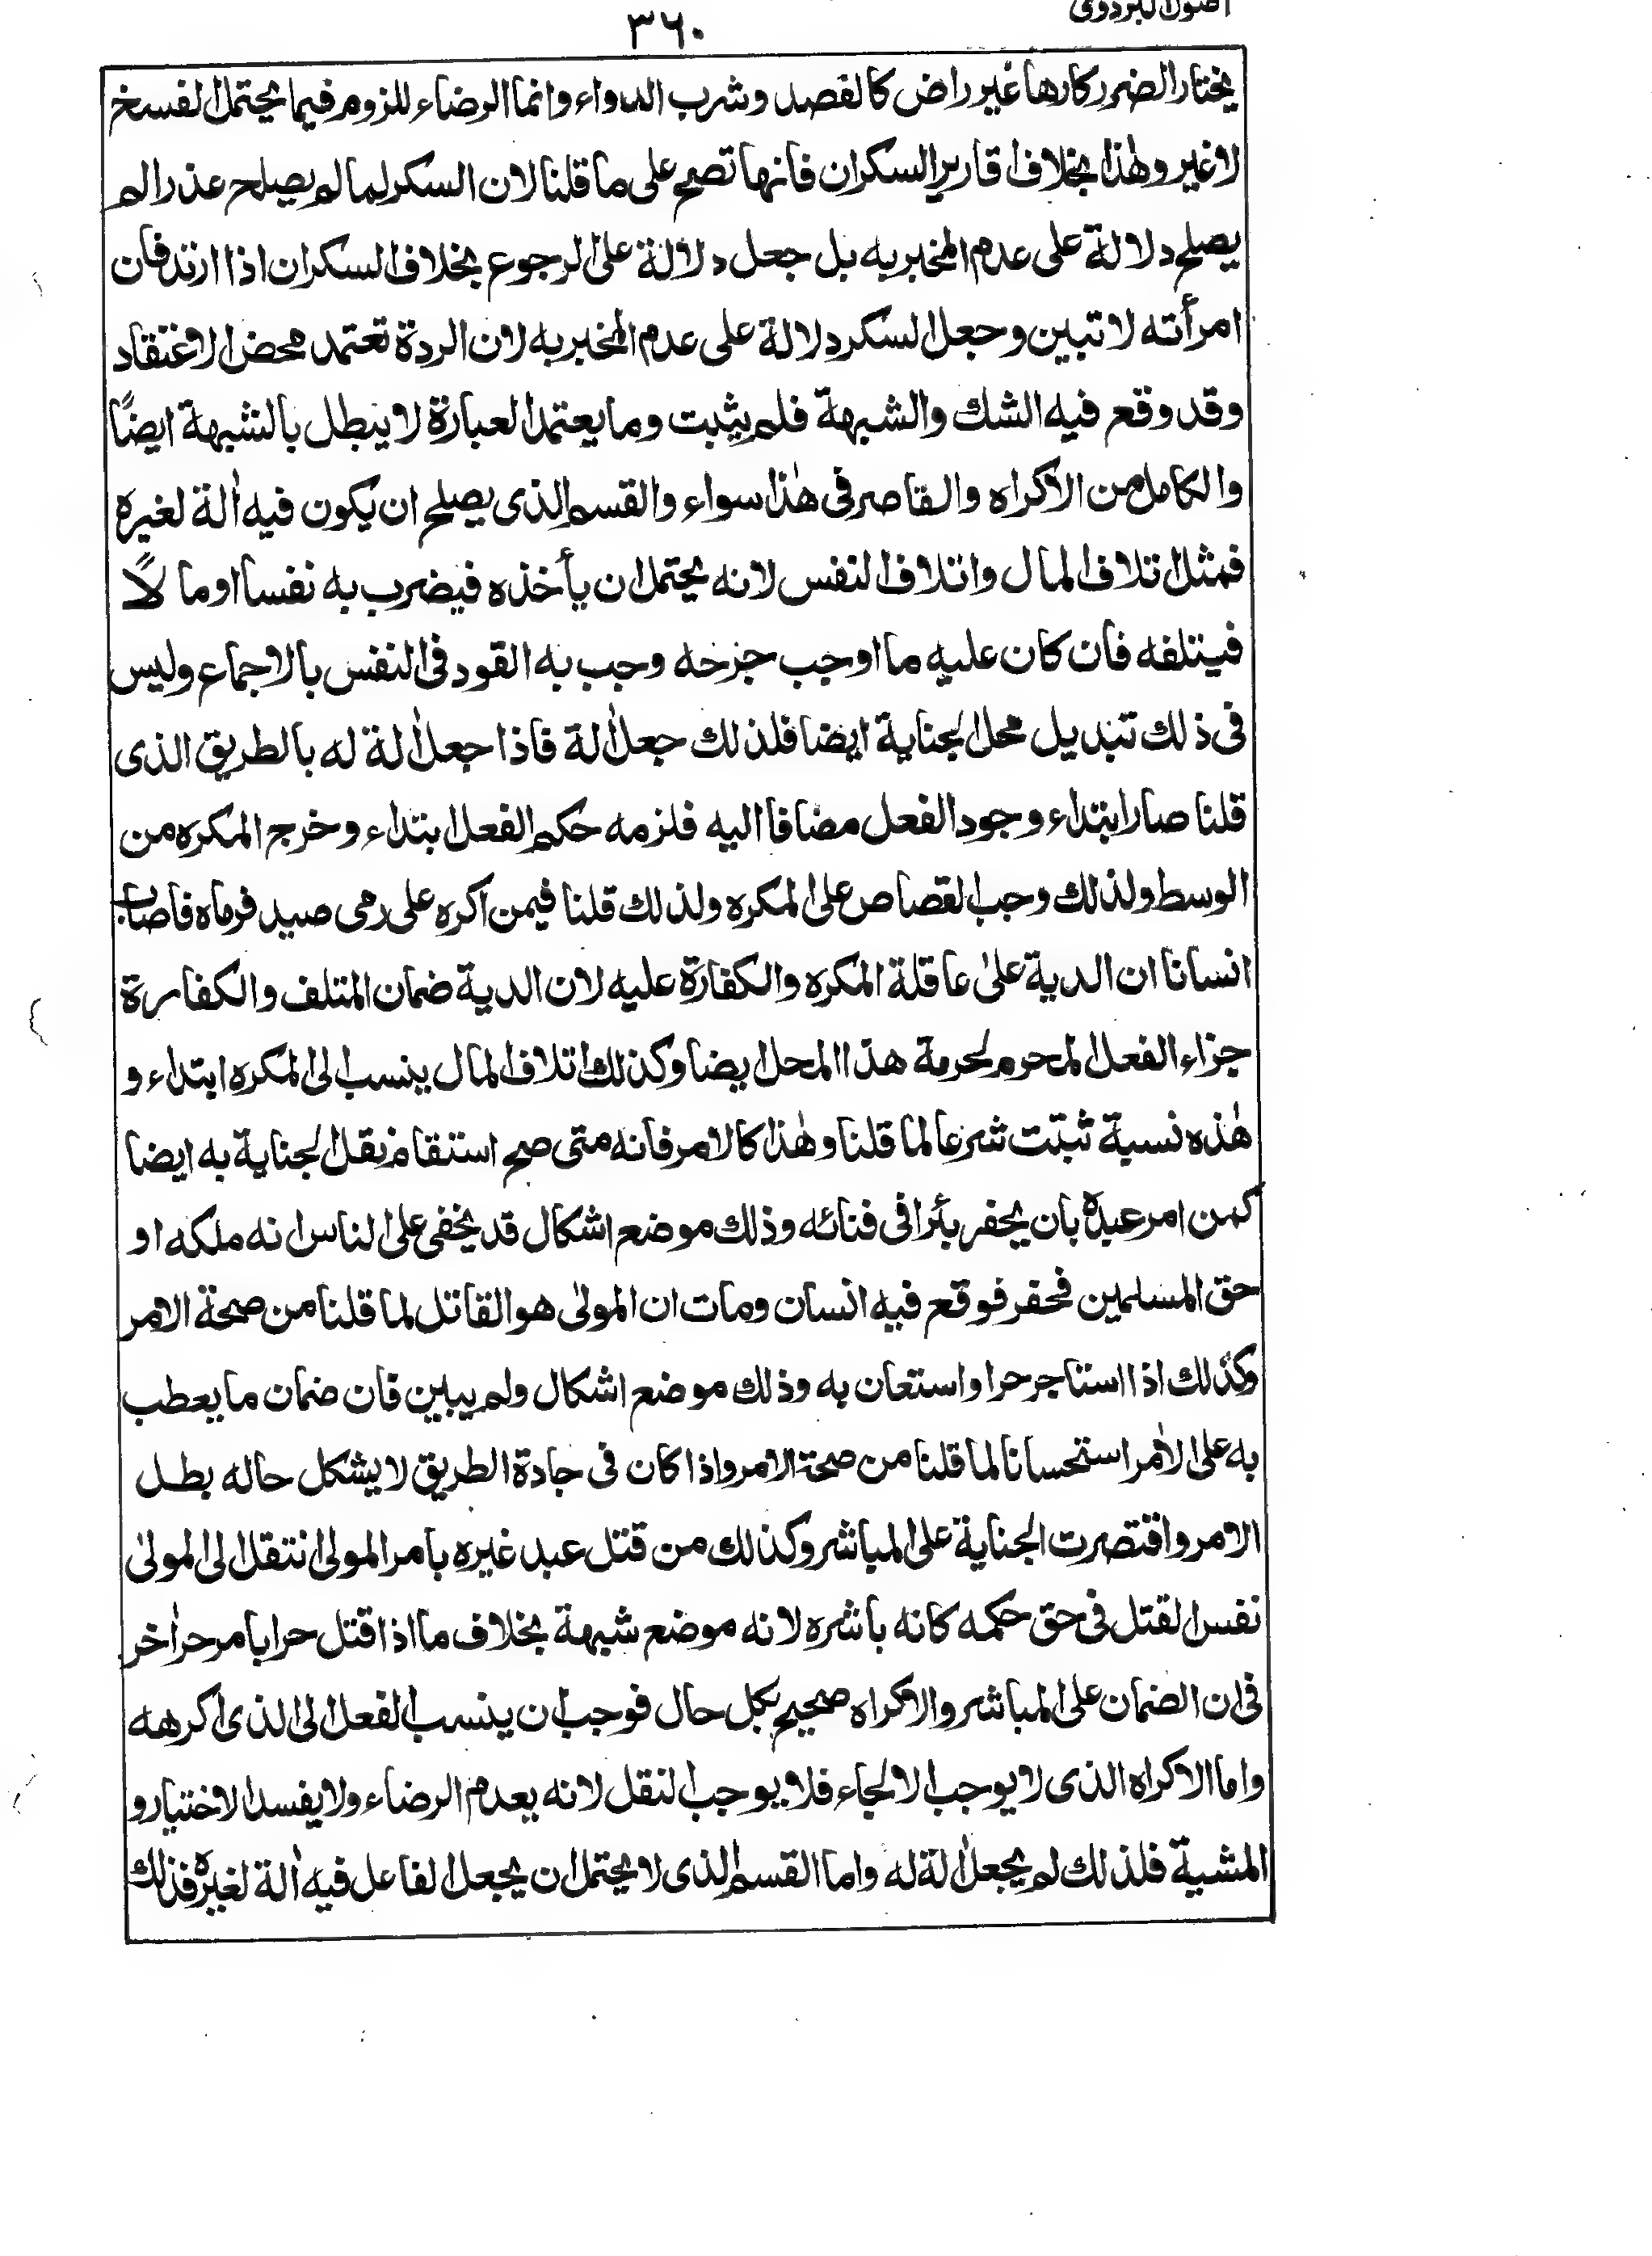 اصول البزدوی
٣٦٠
يختار الضرر كارها غير راض كالفصد وشرب الدواء وانما الرضاء للزوم فيما يحتمل الفسخ
لا غير وهٰذا بخلاف اقارير السكران فانها تصح على ما قلنا لان السكر لما لم يصلح عذرا لم
يصلح دلالة على عدم المخبر به بل جعل دلالة على الرجوع بخلاف السكران اذا ارتد فان
امرأته لا تبين وجعل السكر دلالة على عدم المخبر به لان الردة تعتمد محض الاعتقاد
وقد وقع فيه الشك والشبهة فلم يثبت وما يعتمد العبارة لا يبطل بالشبهة ايضًا
والكامل من الاكراه والقاصر فى هٰذا سواء والقسم الذى يصلح ان يكون فيه اٰلة لغيره
فمثل اتلاف المال واتلاف النفس لانه يحتمل ان يأخذه فيضرب به نفسا او مالًا
فيتلفه فان كان عليه ما اوجب جزحه وجب به القود فى النفس بالاجماع وليس
فى ذلك تبديل محل الجناية ايضا فلذلك جعل اٰلة فاذا جعل اٰلة له بالطريق الذى
قلنا صار ابتداء وجود الفعل مضافا اليه فلزمه حكم الفعل ابتداء وخرج المكره من
الوسط ولذلك وجب القصاص على المكره ولذلك قلنا فيمن اكره على رمى صيد فرماه فاصاب
انسانا ان الدية علىٰ عاقلة المكره والكفارة عليه لان الدية ضمان المتلف والكفارة
جزاء الفعل المحرم لحرمة هذا المحل ايضا وكذلك اتلاف المال ينسب الى المكره ابتداء و
هٰذه نسبة ثبتت شرعا لما قلنا وهٰذا كالامر فانه متى صح استقام نقل الجناية به ايضا
كمن امر عبده بان يحفر بئرا فى فنائه وذلك موضع اشكال قد يخفى على الناس انه ملكه او
حق المسلمين فحفر فوقع فيه انسان ومات ان المولىٰ هو القاتل لما قلنا من صحة الامر
وكذلك اذا استاجر حرا واستعان به وذلك موضع اشكال ولم يبين فان ضمان ما يعطب
به على الاٰمر استحسانا لما قلنا من صحة الامر واذا كان فى جادة الطريق لا يشكل حاله بطل
الامر واقتصرت الجناية على المباشر وكذلك من قتل عبد غيره بامر المولىٰ انتقل الى المولىٰ
نفس القتل فى حق حكمه كانه باشره لانه موضع شبهة بخلاف ما اذا قتل حرا بامر حر اٰخر
فى ان الضمان على المباشر والاكراه صحيح بكل حال فوجب ان ينسب الفعل الى الذى اكرهه
واما الاكراه الذى لا يوجب الالجاء فلا يوجب النقل لانه يعدم الرضاء ولا يفسد الاختيار و
المشية فلذلك لم يجعل اٰلة له واما القسم الذى لا يحتمل ان يجعل الفاعل فيه اٰلة لغيره فذلك